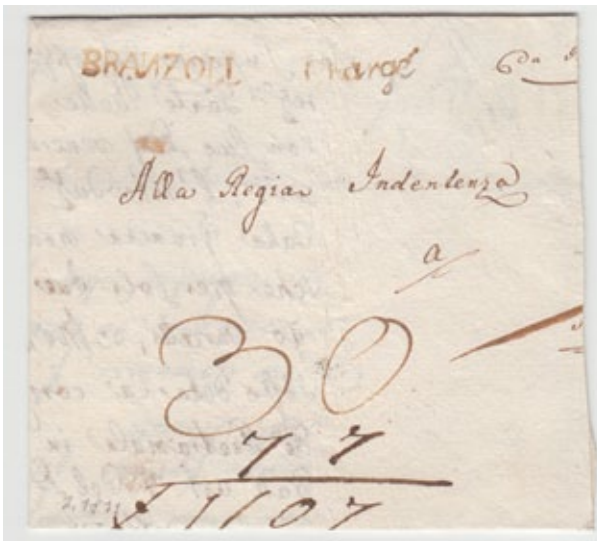 BRANZOLL Chargé 6da
Alla Regia Indendenza
a
30
7 7
1107